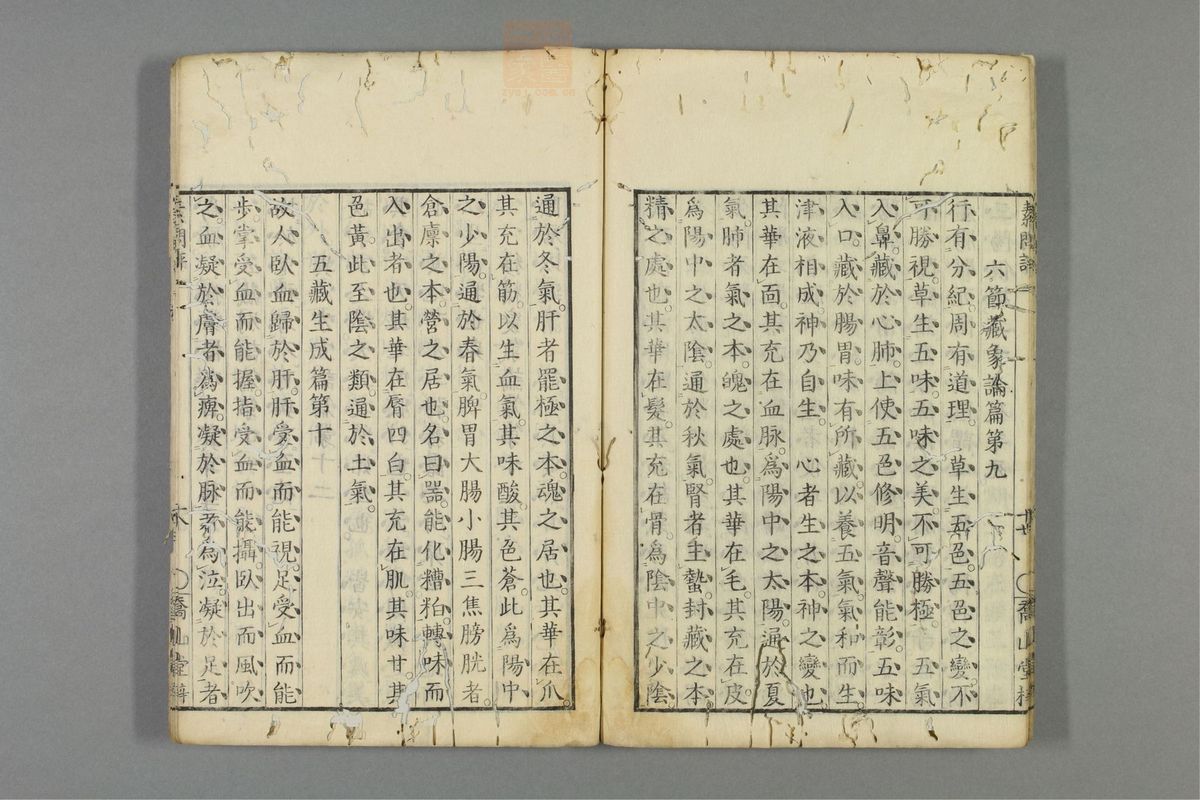 六節藏象論篇第九
行有分紀周有道理草生五色五色之變不
可勝視草生五味五味之美不可勝極五氣
入鼻藏於心肺上使五色修明音聲能彰五味
入口藏於腸胃味有所藏以養五氣氣和而生
津液相成神乃自生心者生之本神之變也
其華在面其充在血脉為陽中之太陽通於夏
氣肺者氣之本魄之處也其華在毛其充在皮
為陽中之太陰通於秋氣腎者主蟄封藏之本
精之處也其華在髮其充在骨為陰中之少陰
通於冬氣肝者罷極之本魂之居也其華在爪
其充在筋以生血氣其味酸其色蒼此為陽中
之少陽通於春氣脾胃大腸小腸三焦膀胱者
倉廩之本營之居也名曰器能化糟粕轉味而
入出者也其華在唇四白其充在肌其味甘其
色黃此至陰之類通於土氣
五藏生成篇第十
故人臥血歸於肝肝受血而能視足受血而能
步掌受血而能握指受血而能攝臥出而風吹
之血凝於膚者為痺凝於脉者為泣凝於足者